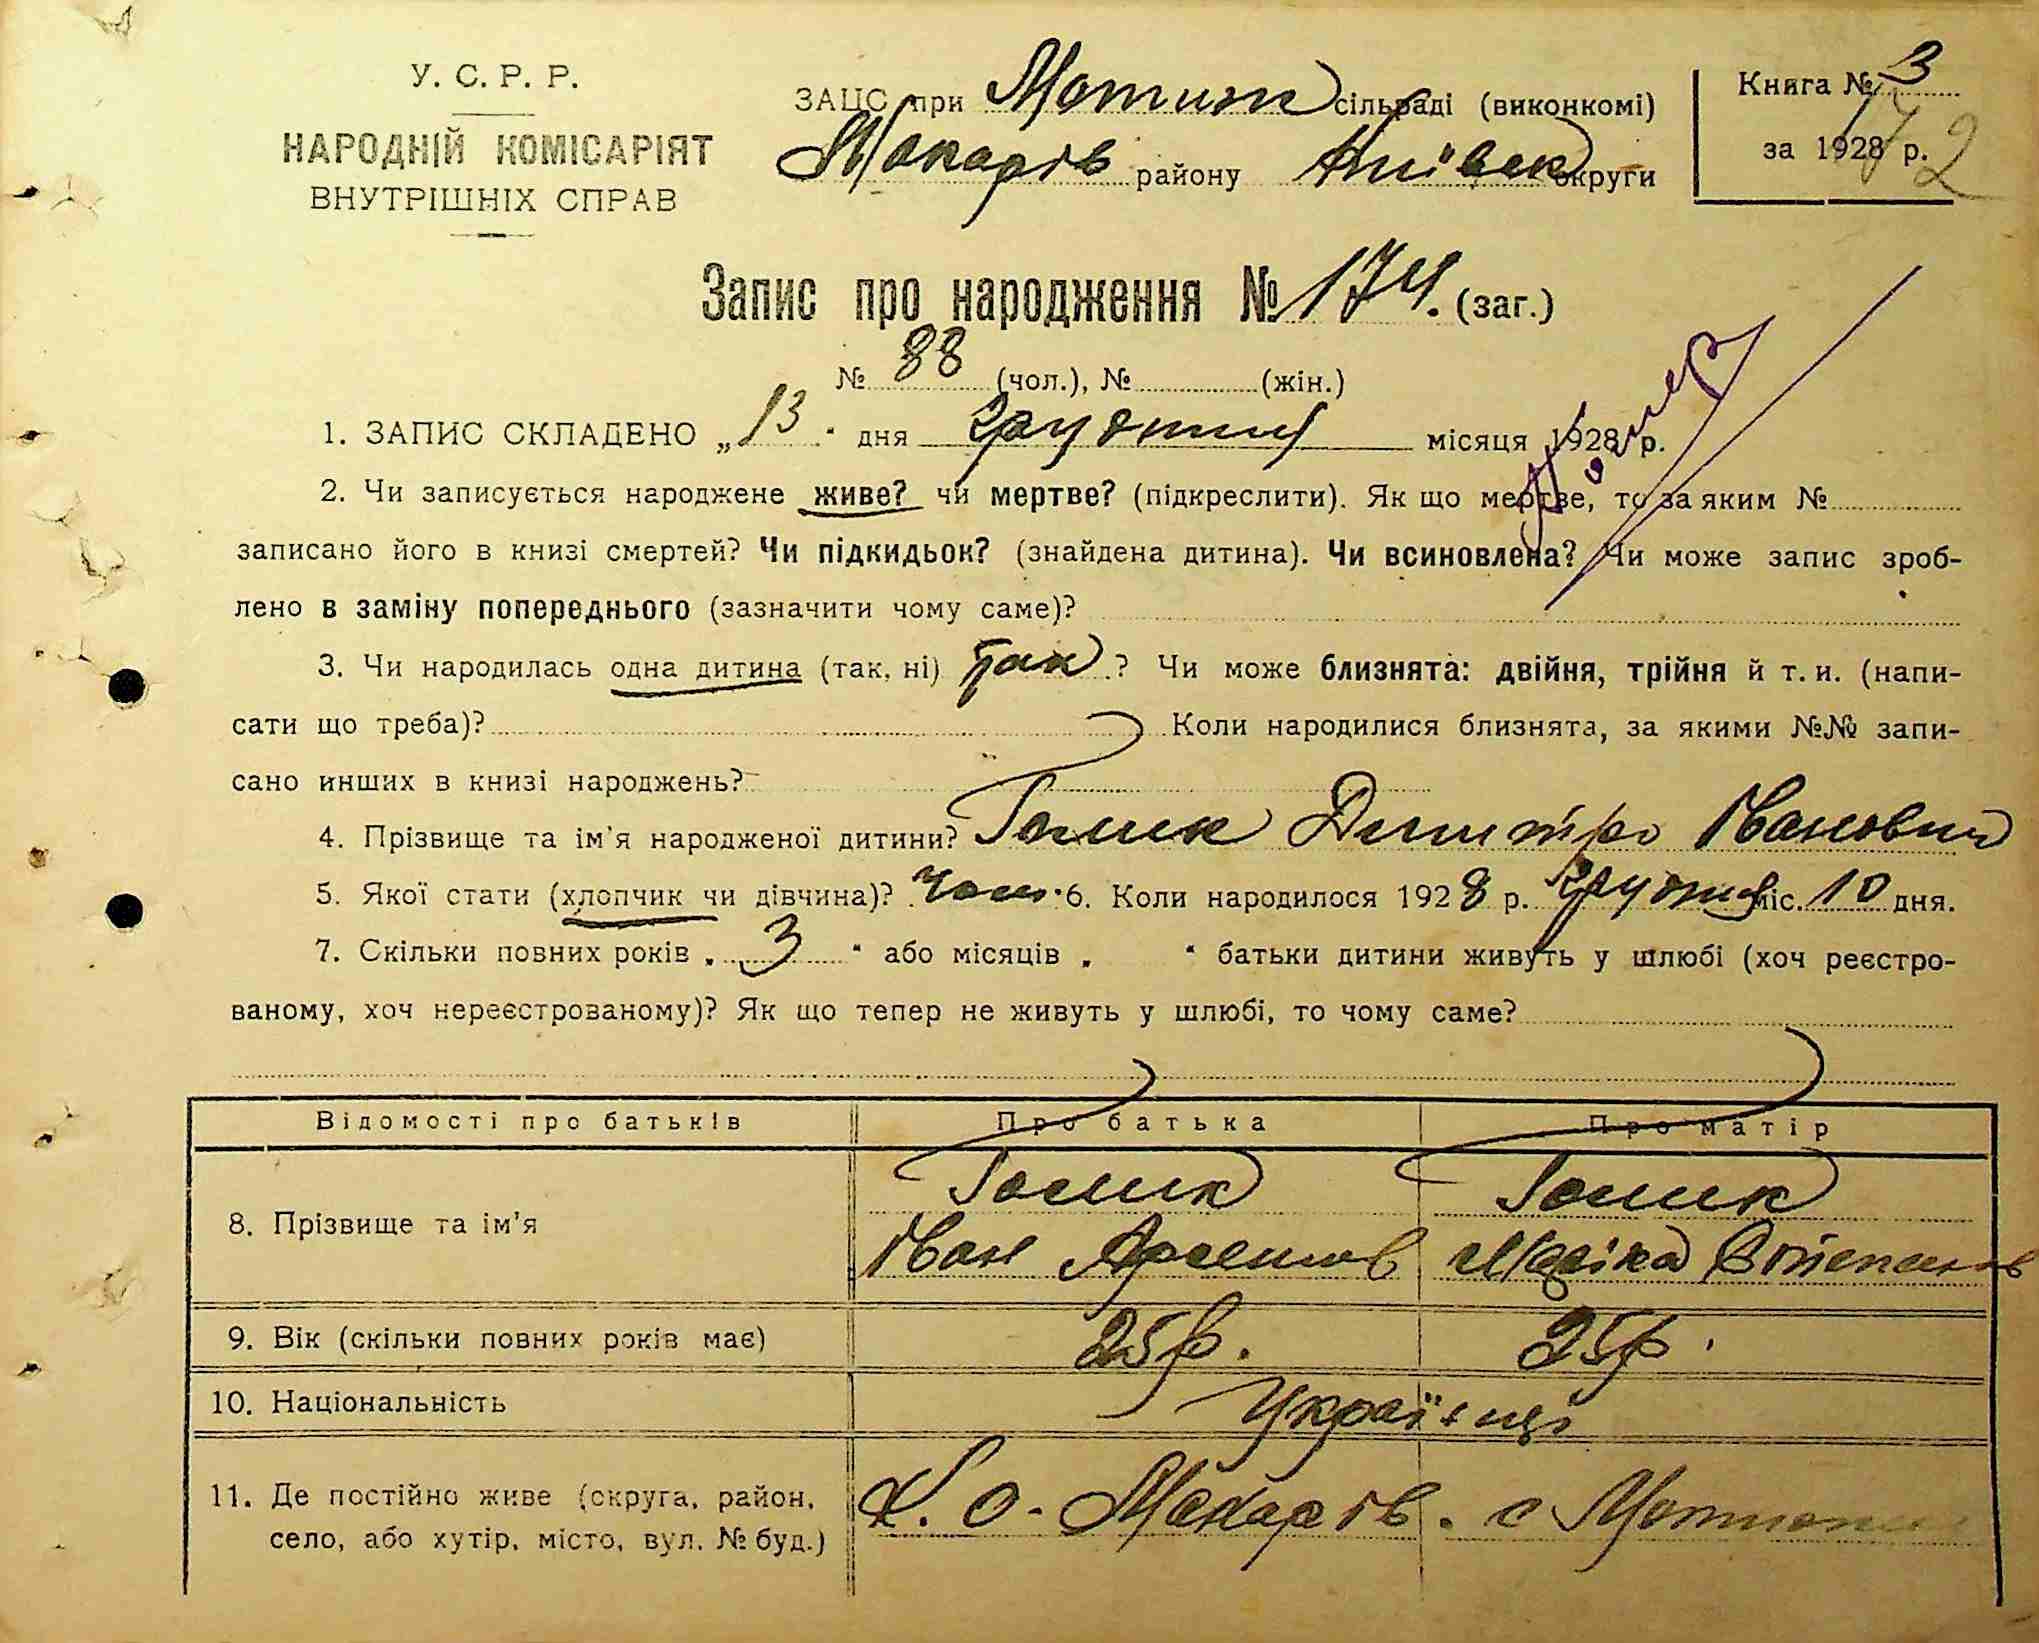 У. С. Р. Р.
НАРОДНІЙ КОМІСАРІЯТ
ВНУТРІШНІХ СПРАВ
ЗАЦС при Мотиж сільраді (виконкомі)
Макарів району Київськ округи
Книга № 3
за 1928 р.
172
Запис про народження № 174. (заг.)
№ 88 (чол.), № (жін.)
1. ЗАПИС СКЛАДЕНО „13“ дня грудння місяця 1928 р.
Помер
2. Чи записується народжене живе? чи мертве? (підкреслити). Як що мертве, то за яким №
записано його в книзі смертей? Чи підкидьок? (знайдена дитина). Чи всиновлена? Чи може запис зроб-
лено в заміну попереднього (зазначити чому саме)?
3. Чи народилась одна дитина (так, ні) так ? Чи може близнята: двійня, трійня й т. и. (напи-
сати що треба)? Коли народилися близнята, за якими №№ запи-
сано инших в книзі народжень?
4. Прізвище та ім'я народженої дитини? Голик Дмитро Іванович
5. Якої стати (хлопчик чи дівчина)? Чол. 6. Коли народилося 1928 р. грудня міс. 10 дня.
7. Скільки повних років „ 3 “ або місяців „ “ батьки дитини живуть у шлюбі (хоч реєстро-
ваному, хоч нереєстрованому)? Як що тепер не живуть у шлюбі, то чому саме?
Відомості про батьків Про батька Про матір
8. Прізвище та ім'я
Голик Голик
Іван Арсенов Маріка Степанов
9. Вік (скільки повних років має) 25 р. 25 р.
10. Національність Українці
11. Де постійно живе (округа, район,
село, або хутір, місто, вул. № буд.)
К. о. Макарів. с Мотижин